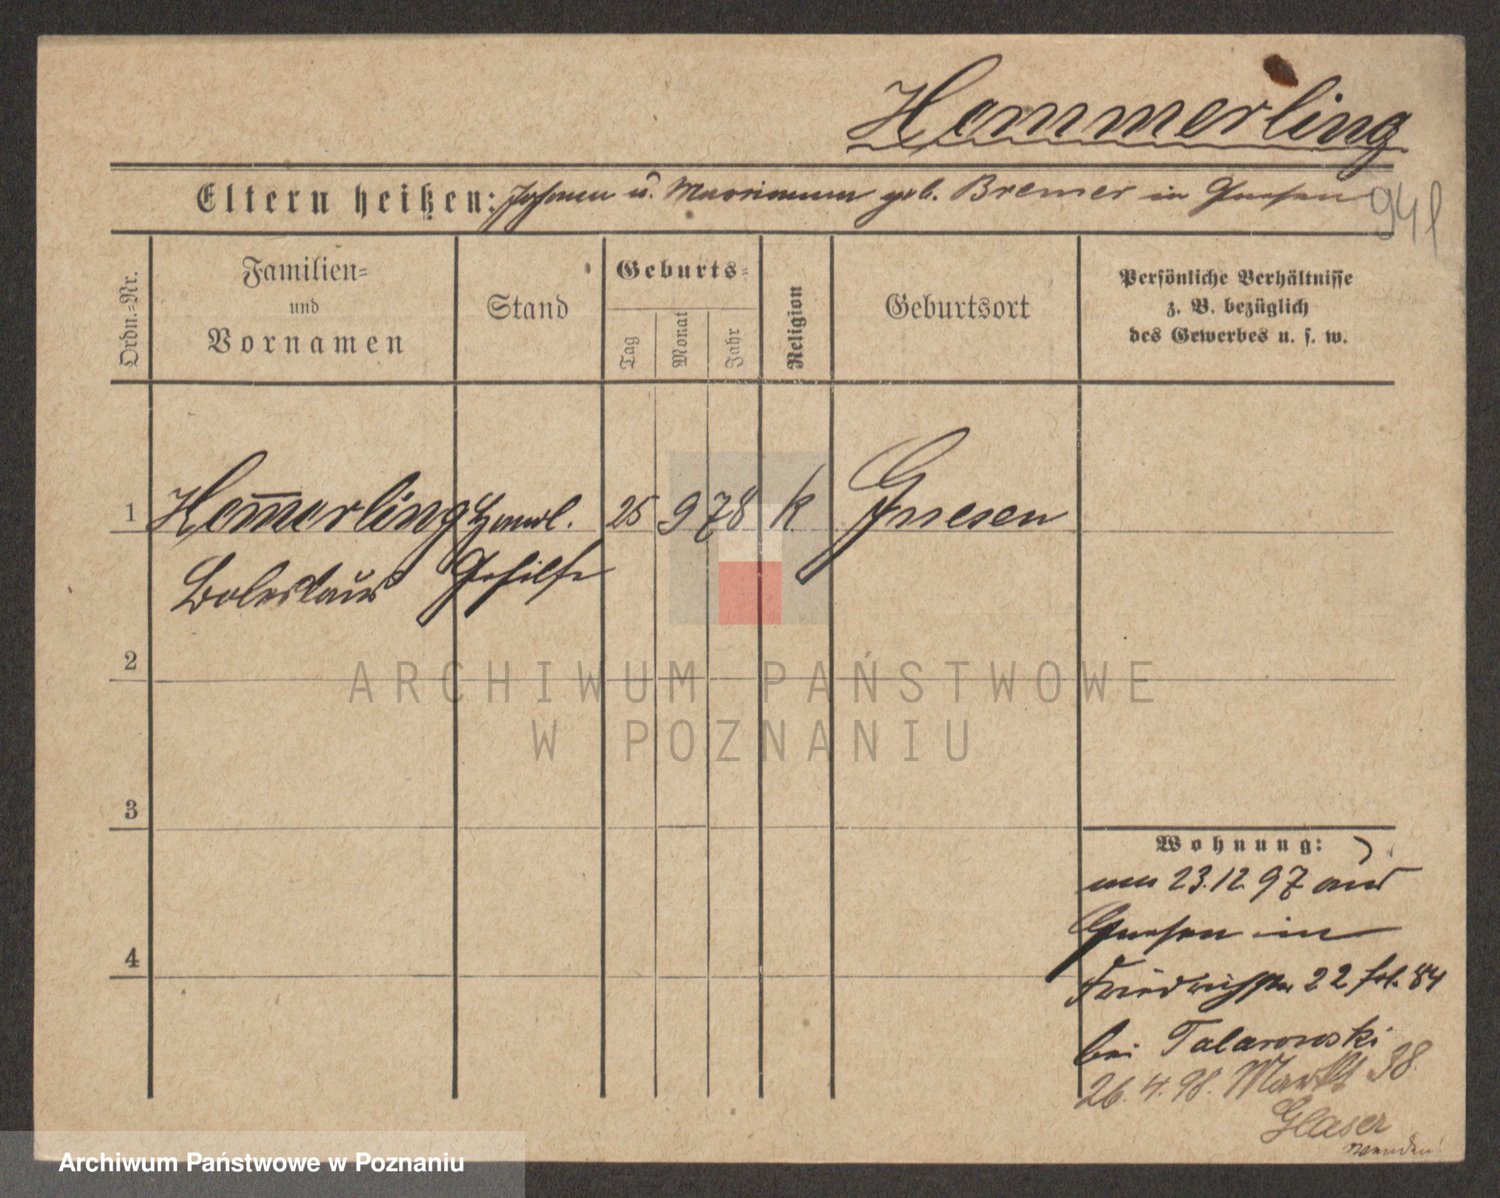 Hemmerling
Eltern heißen: Johann u. Marianna geb. Bremer in Gnesen
94
Ordn.-Nr.
Familien-
und
Vornamen
Stand
Geburts-
Tag
Monat
Jahr
Religion
Geburtsort
Persönliche Verhältnisse
z. B. bezüglich
des Gewerbes u. s. w.
1 Hem̅erling Handl. 25 9 78 k Gnesen
Boleslaus Gehilfe
2
ARCHIWUM PAŃSTWOWE
W POZNANIU
3
Wohnung:
am 23.12.97 aus
Gnesen in
Friedrichstr 22 fol. 84
bei Talarowski
26.4.98. Markt 38.
Glaser
wenden!
4
Archiwum Państwowe w Poznaniu